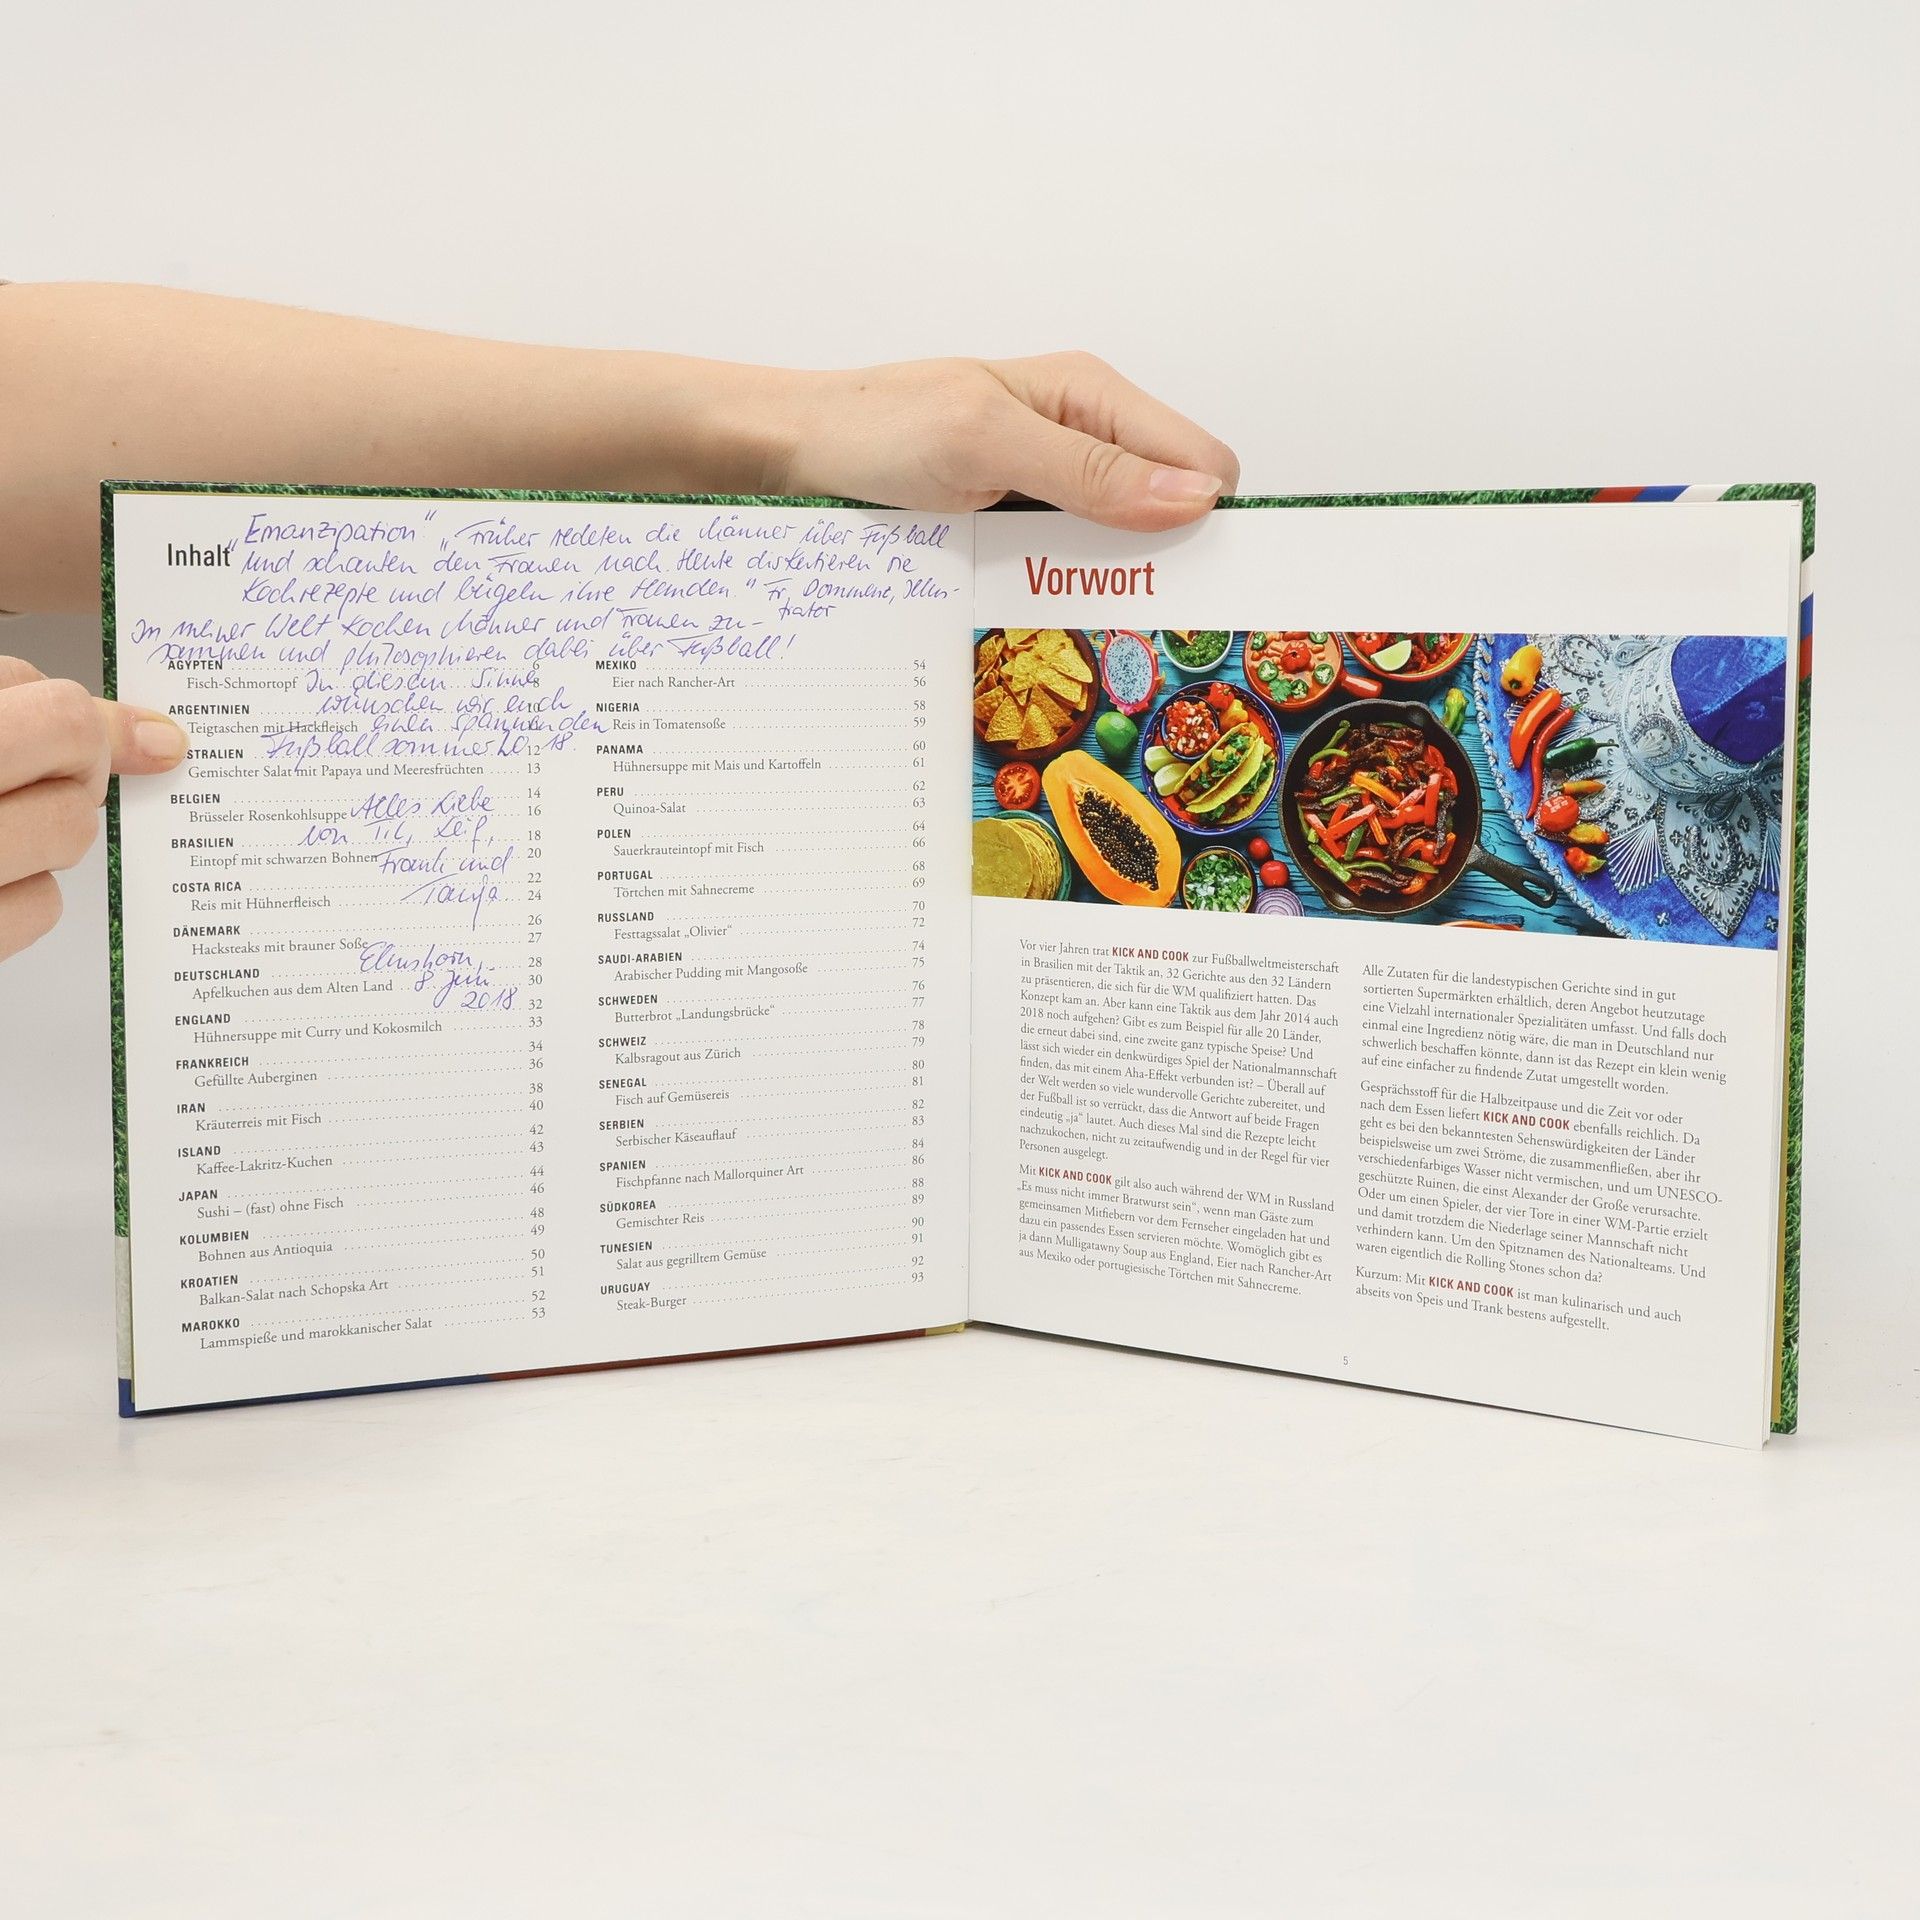 Inhalt
„Emanzipation": „Früher redeten die Männer über Fußball
und schauten den Frauen nach. Heute diskutieren sie
Kochrezepte und bügeln ihre Hemden." Fr. Illus-
trator
In meiner Welt kochen Männer und Frauen zu-
sammen und philosophieren dabei über Fußball!
In diesem Sinne
wünschen wir euch
einen spannenden
Fußballsommer 2018.
Alles Liebe
von Leif,
Frank und
Tanja
Elmshorn,
8. Juni
2018
ÄGYPTEN 6
Fisch-Schmortopf 8
ARGENTINIEN
Teigtaschen mit Hackfleisch
STRALIEN 12
Gemischter Salat mit Papaya und Meeresfrüchten 13
BELGIEN 14
Brüsseler Rosenkohlsuppe 16
BRASILIEN 18
Eintopf mit schwarzen Bohnen 20
COSTA RICA 22
Reis mit Hühnerfleisch 24
DÄNEMARK 26
Hacksteaks mit brauner Soße 27
DEUTSCHLAND 28
Apfelkuchen aus dem Alten Land 30
ENGLAND 32
Hühnersuppe mit Curry und Kokosmilch 33
FRANKREICH 34
Gefüllte Auberginen 36
IRAN 38
Kräuterreis mit Fisch 40
ISLAND 42
Kaffee-Lakritz-Kuchen 43
JAPAN 44
Sushi – (fast) ohne Fisch 46
KOLUMBIEN 48
Bohnen aus Antioquia 49
KROATIEN 50
Balkan-Salat nach Schopska Art 51
MAROKKO 52
Lammspieße und marokkanischer Salat 53
MEXIKO 54
Eier nach Rancher-Art 56
NIGERIA 58
Reis in Tomatensoße 59
PANAMA 60
Hühnersuppe mit Mais und Kartoffeln 61
PERU 62
Quinoa-Salat 63
POLEN 64
Sauerkrauteintopf mit Fisch 66
PORTUGAL 68
Törtchen mit Sahnecreme 69
RUSSLAND 70
Festtagssalat „Olivier“ 72
SAUDI-ARABIEN 74
Arabischer Pudding mit Mangosoße 75
SCHWEDEN 76
Butterbrot „Landungsbrücke“ 77
SCHWEIZ 78
Kalbsragout aus Zürich 79
SENEGAL 80
Fisch auf Gemüsereis 81
SERBIEN 82
Serbischer Käseauflauf 83
SPANIEN 84
Fischpfanne nach Mallorquiner Art 86
SÜDKOREA 88
Gemischter Reis 89
TUNESIEN 90
Salat aus gegrilltem Gemüse 91
URUGUAY 92
Steak-Burger 93
Vorwort
Vor vier Jahren trat KICK AND COOK zur Fußballweltmeisterschaft
in Brasilien mit der Taktik an, 32 Gerichte aus den 32 Ländern
zu präsentieren, die sich für die WM qualifiziert hatten. Das
Konzept kam an. Aber kann eine Taktik aus dem Jahr 2014 auch
2018 noch aufgehen? Gibt es zum Beispiel für alle 20 Länder,
die erneut dabei sind, eine zweite ganz typische Speise? Und
lässt sich wieder ein denkwürdiges Spiel der Nationalmannschaft
finden, das mit einem Aha-Effekt verbunden ist? – Überall auf
der Welt werden so viele wundervolle Gerichte zubereitet, und
der Fußball ist so verrückt, dass die Antwort auf beide Fragen
eindeutig „ja“ lautet. Auch dieses Mal sind die Rezepte leicht
nachzukochen, nicht zu zeitaufwendig und in der Regel für vier
Personen ausgelegt.
Mit KICK AND COOK gilt also auch während der WM in Russland
„Es muss nicht immer Bratwurst sein“, wenn man Gäste zum
gemeinsamen Mitfiebern vor dem Fernseher eingeladen hat und
dazu ein passendes Essen servieren möchte. Womöglich gibt es
ja dann Mulligatawny Soup aus England, Eier nach Rancher-Art
aus Mexiko oder portugiesische Törtchen mit Sahnecreme.
Alle Zutaten für die landestypischen Gerichte sind in gut
sortierten Supermärkten erhältlich, deren Angebot heutzutage
eine Vielzahl internationaler Spezialitäten umfasst. Und falls doch
einmal eine Ingredienz nötig wäre, die man in Deutschland nur
schwerlich beschaffen könnte, dann ist das Rezept ein klein wenig
auf eine einfacher zu findende Zutat umgestellt worden.
Gesprächsstoff für die Halbzeitpause und die Zeit vor oder
nach dem Essen liefert KICK AND COOK ebenfalls reichlich. Da
geht es bei den bekanntesten Sehenswürdigkeiten der Länder
beispielsweise um zwei Ströme, die zusammenfließen, aber ihr
verschiedenfarbiges Wasser nicht vermischen, und um UNESCO-
geschützte Ruinen, die einst Alexander der Große verursachte.
Oder um einen Spieler, der vier Tore in einer WM-Partie erzielt
und damit trotzdem die Niederlage seiner Mannschaft nicht
verhindern kann. Um den Spitznamen des Nationalteams. Und
waren eigentlich die Rolling Stones schon da?
Kurzum: Mit KICK AND COOK ist man kulinarisch und auch
abseits von Speis und Trank bestens aufgestellt.
5